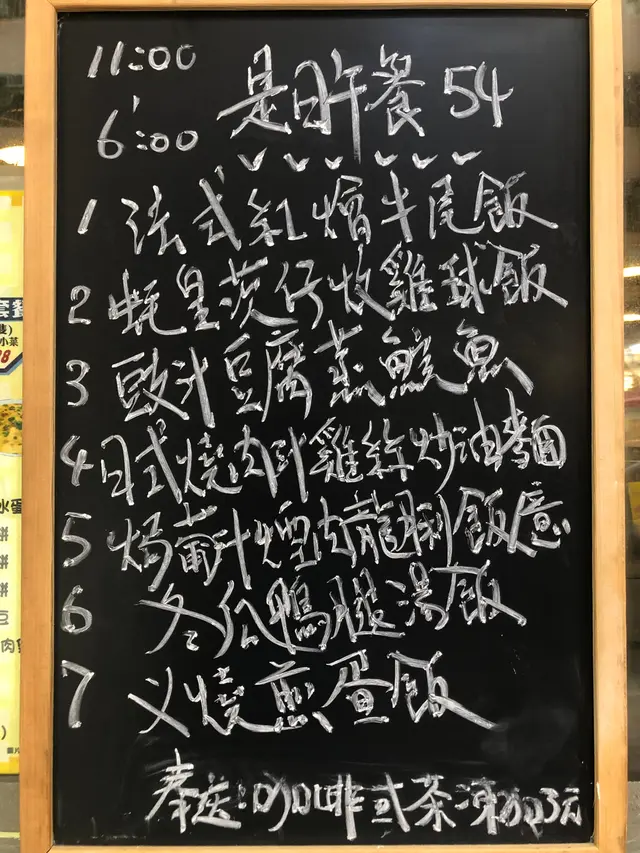 11:00
6:00
是日午餐 54
1 法式紅燴牛尾飯
2 蚝皇茨仔炆雞球飯
3 豉汁豆腐蒸鯇魚
4 日式燒肉汁雞絲炒油麵
5 焗葡汁煙肉龍脷飯/意
6 冬瓜鴨腿湯飯
7 叉燒煎蛋飯
奉送:咖啡或茶 凍加3元
套餐
小菜